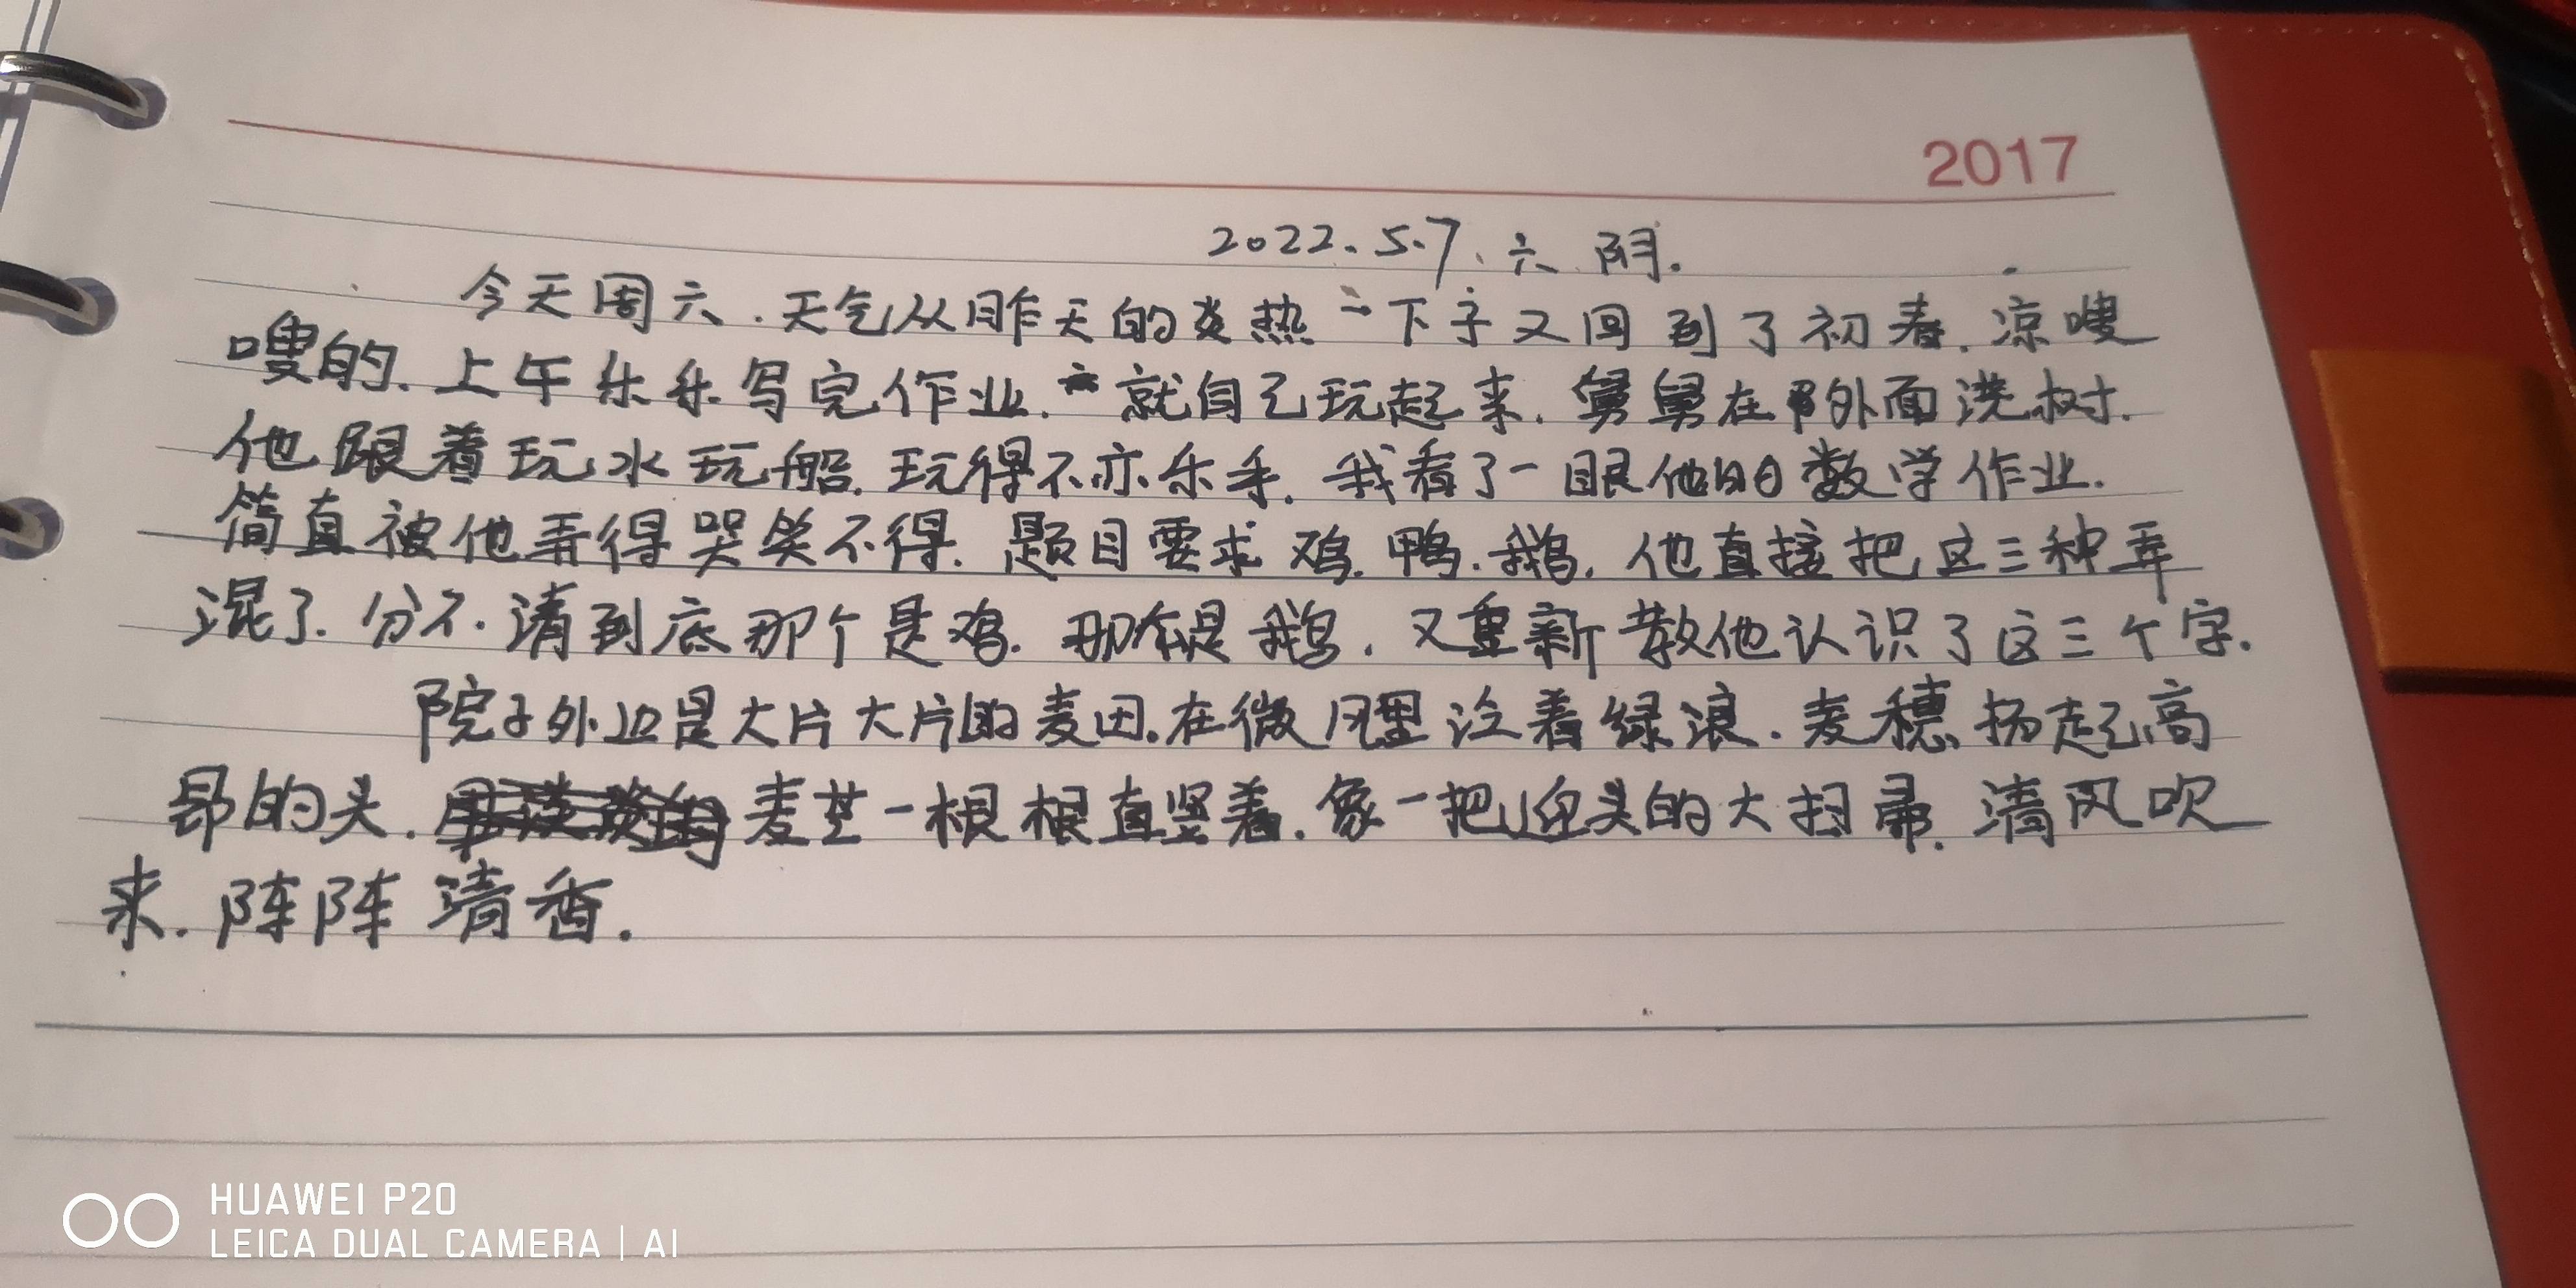 2017
2022.5.7.六 阴.
今天周六.天气从昨天的炎热一下子又回到了初春.凉嗖
嗖的.上午乐乐写完作业.就自己玩起来.舅舅在外面浇树.
他跟着玩水玩船.玩得不亦乐乎.我看了一眼他的数学作业.
简直被他弄得哭笑不得.题目要求鸡.鸭.鹅.他直接把这三种弄
混了.分不.清到底那个是鸡.那个是鹅.又重新教他认识了这三个字.
院子外边是大片大片的麦田.在微风里泛着绿浪.麦穗扬起高
昂的头.麦芒一根根直竖着.像一把迎头的大扫帚.清风吹
来.阵阵清香.
HUAWEI P20
LEICA DUAL CAMERA | AI